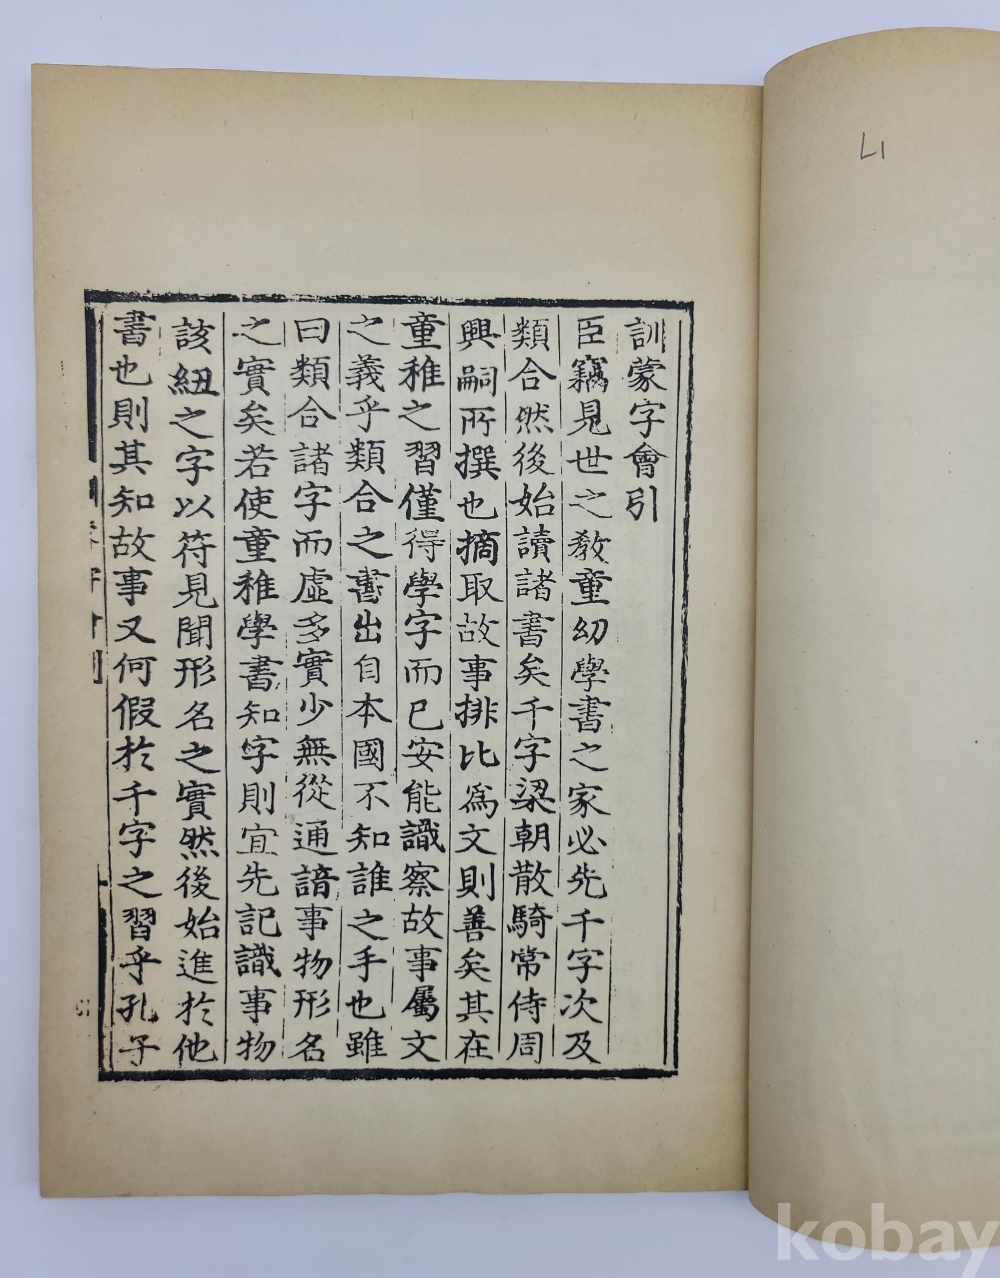 訓蒙字會引
臣竊見世之敎童幼學書之家必先千字次及
類合然後始讀諸書矣千字梁朝散騎常侍周
興嗣所撰也摘取故事排比爲文則善矣其在
童稚之習僅得學字而已安能識察故事屬文
之義乎類合之書出自本國不知誰之手也雖
曰類合諸字而虛多實少無從通諳事物形名
之實矣若使童稚學書知字則宜先記識事物
該紐之字以符見聞形名之實然後始進於他
書也則其知故事又何假於千字之習乎孔子
kobay